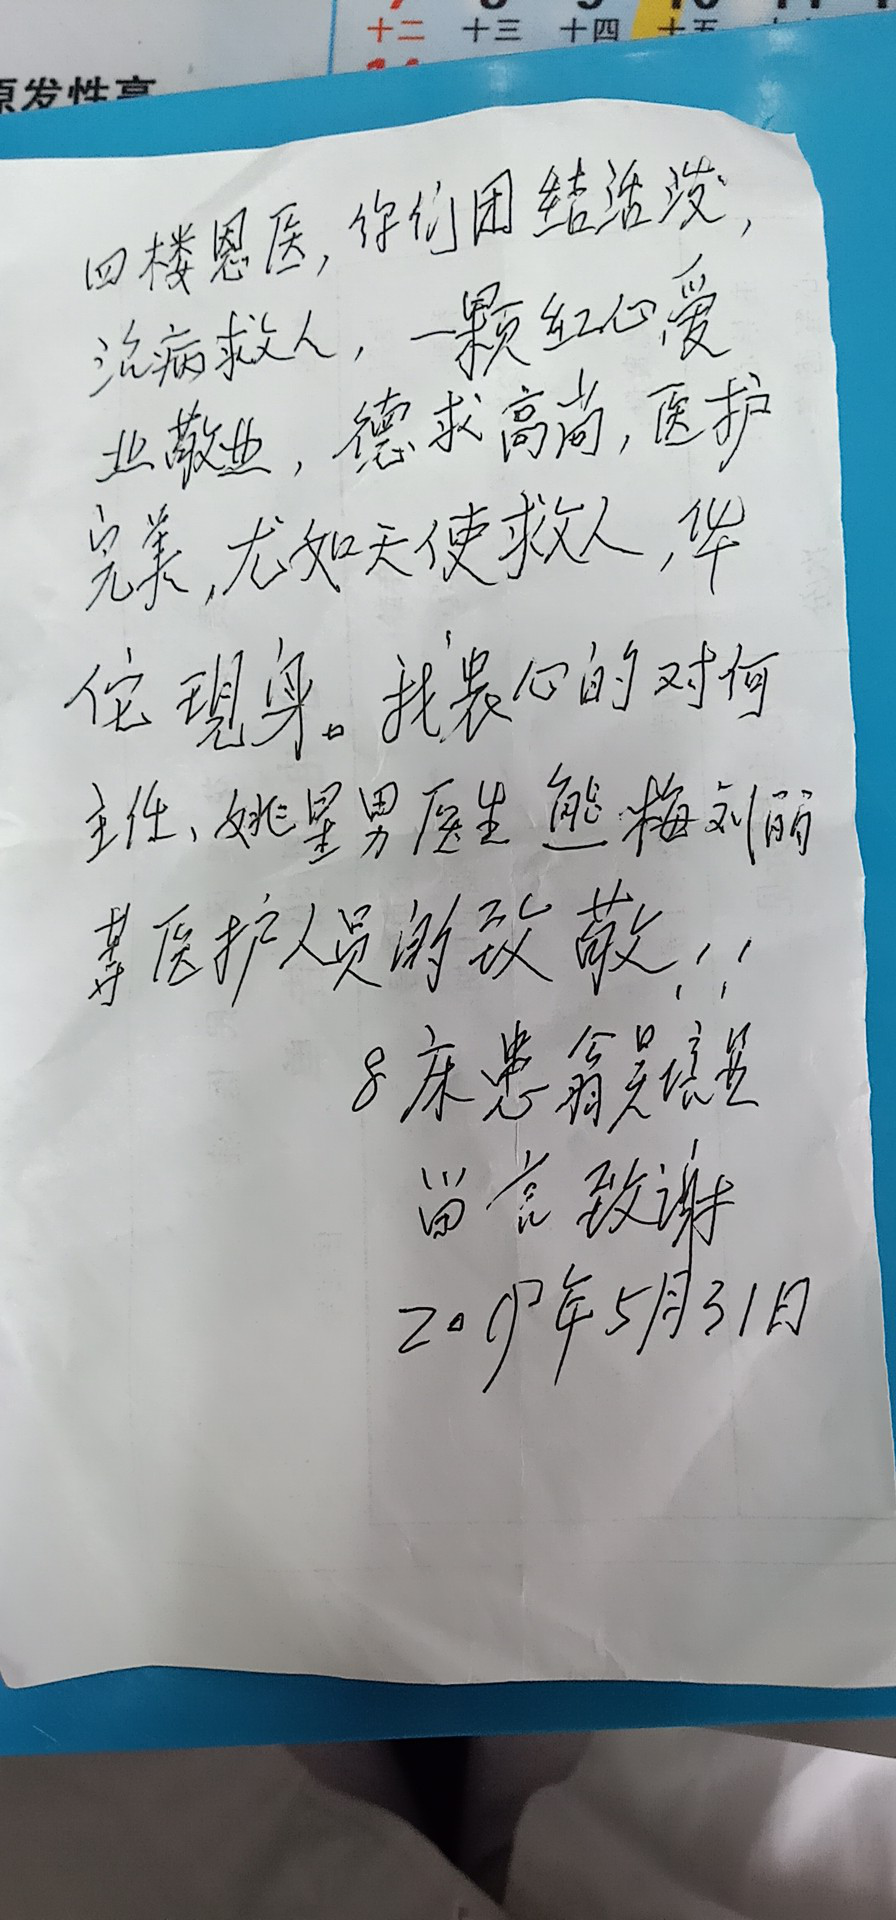 十二 十三 十四 十五
原发性高
四楼恩医，你们团结活泼，
治病救人，一颗红心爱
业敬业，德求高尚，医护
完美，尤如天使救人，华
佗現身。我衷心的对何
主任、姚星男医生熊梅刘丽
等医护人员的致敬！！
8床患翁吴培
留言致谢
年5月31日